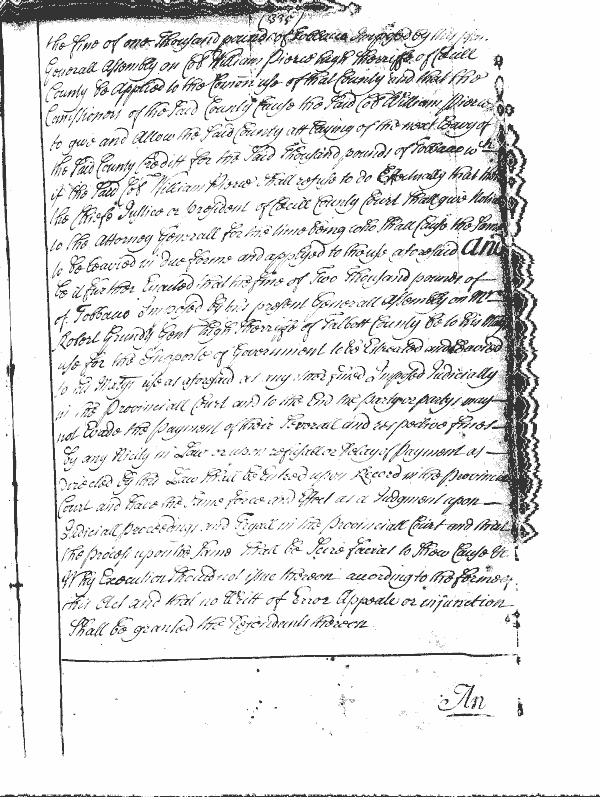 (335)
the fine of one Thousand pounds of Tobacco Imposed by this
Generall Assembly on Coll William Pierce high Sherriffe of Cecill
County be Applyed to the Comon use of that County and that the
Comissioners of the said County Cause the said Coll William Pierce
to give and Allow the said County att Laying of the next Leavy of
the said County Creditt for the said Thousand pounds of Tobbaco wch
if the said Coll William Pierce shall refuse to do Effectually that then
the Chiefe Justice or president of Cecill County Court shall give Notice
to the Attorney Generall for the time being who shall Cause the same
to be Leavied in due forme and applyed to the use aforesaid And
be it further Enacted that the fine of Two Thousand pounds of
of Tobbaco Imposed by this present Generall Assembly on Mr
Robert Grundy Gent high Sherriffe of Talbott County be to his Maj
use for the Support of Government to be Estreated and Leavied
to his Majtys use as aforesaid as any other fines Imposed Judicially
in the Provinciall Court and to the End the party or partys may
not Evade the payment of their Severall and respective fines
by any Nicity in Law or upon refusall or Delay of Payment as
Directed by this Law shall be Entred upon Record in the Provincial
Court and have the same force and Effect as a Judgment upon
Judiciall Proceedings and Tryall in the Provinciall Court and that
the process upon the same shall be Scire facias to show Cause &c
Why Execution should not issue thereon according to the forme
of this Act and that no Writt of Error Appeale or injunction
Shall be granted the Defendants thereon
An